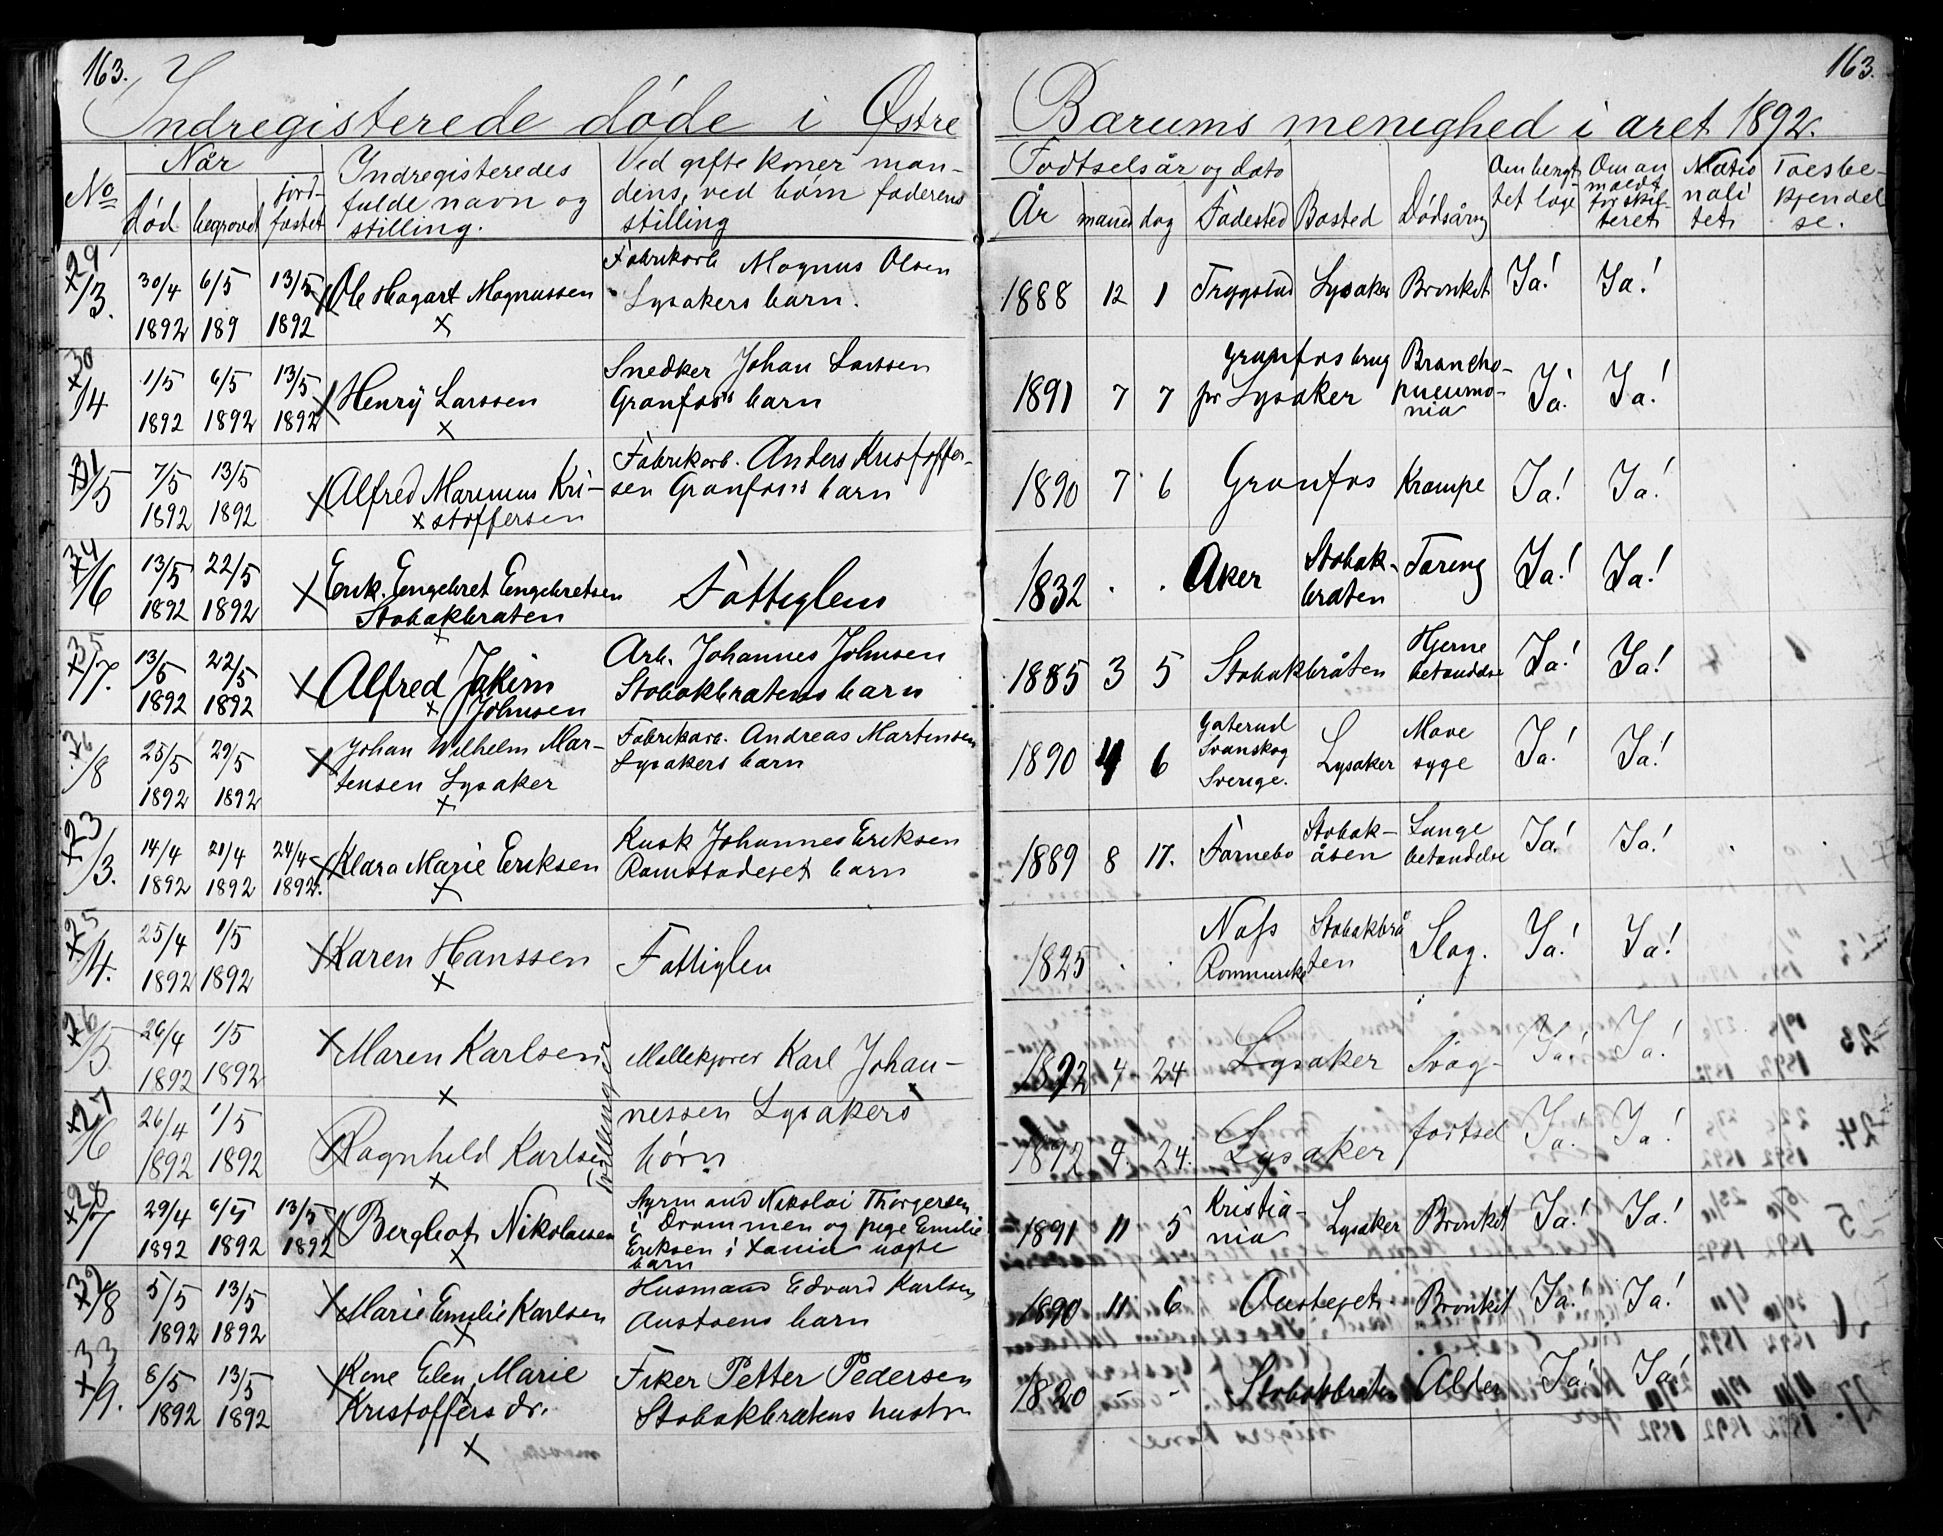 163. 163.
Indregisterede døde i Østre Bærums menighed i aret 1892.
No Når Indregisteredes Ved gifte koner man- Fødtselsår og dato Om benyt Om an Natio Troesbe-
død begravet jord- fulde navn og dens, ved børn faderens År måned dag Fødested Bosted Dødsårsag tet læge meldt nali kjendel
fæstet stilling. stilling for skif- tet se.
teret
29 30/4 6/5 13/5 Ole Hagart Magnussen Fabrikarb Magnus Olsen 1888 12 1 Trygstad Lysaker Bronkit Ja! Ja!
/3. 1892 189 1892 x Lysakers barn.
30 1/5 6/5 13/5 Henry Larssen Snedker Johan Larssen 1891 7 7 Granfos brug Broncho-
/4 1892 1892 1892 x Granfos's barn pr Lysaker pneumo- Ja! Ja!
nia
31 7/5 13/5 Alfred Marinius Kri- Fabrikarb. Anders Kristoffer- 1890 7 6 Granfos Krampe Ja! Ja!
/5 1892 1892 x stoffersen sen Granfos's barn
34 13/5 22/5 Erik Engebret Engebretsen Fattiglem 1832 . . Aker Stabæk- Tæring Ja! Ja!
/6 1892 1892 Stabækbraten braten
x
35 13/5 22/5 Alfred Jakim Arb. Johannes Johnsen 1885 3 5 Stabækbråten Hjerne Ja! Ja!
/7. 1892 1892 x Johnsen Stabækbratens barn betændelse
36 25/5 29/5 Johan Wilhelm Mar- Fabrikarb. Andreas Martensen 1890 4 6 Gaterud Lysaker Mave Ja! Ja!
/8 1892 1892 tensen Lysaker Lysakers barn Svanskog syge
x Sverige.
23 14/4 21/4 24/4 Klara Marie Eriksen Kusk Johannes Eriksen 1889 8 17. Færnebo Stabæk- Lunge Ja! Ja!
/3. 1892 1892 1892. x Ramstadeget barn åsen betændelse
25 25/4 1/5 Karen Hanssen Fattiglem 1825 . . Næs Stabækbrå Slag. Ja! Ja!
/4. 1892 1892 x Rommerike ten
26 26/4 1/5 Maren Karlsen Møllekjører Karl Johan- 1892 4 24 Lysaker Svag- Ja! Ja!
/5 1892 1892 x Tvillinger
27 26/4 1/5 Ragnhild Karlsen nessen Lysakers 1892 4. 24. Lysaker fødtsel Ja! Ja!
/6 1892 1892 x børn
28 29/4 6/5 13/5 Bergliot Nikolaisen Styrmand Nikolai Thorgersen 1891 11 5 Kristia- Lysaker Bronkit Ja! Ja!
/7 1892 1892 1892 x i Drammen og pige Emilie nia
Eriksen i Xania uægte
barn
32 5/5 13/5 Marie Emilie Karlsen Husmand Edvard Karlsen 1890 11 6 Bronkit Ja! Ja!
/8 1892 1892 x barn
33 8/5 13/5 Kone Elen Marie Fisker Petter Pedersen 1820 - - Stabækbråten Alder Ja! Ja!
/9. 1892 1892 Kristoffers dr. Stabækbratens hustr
x